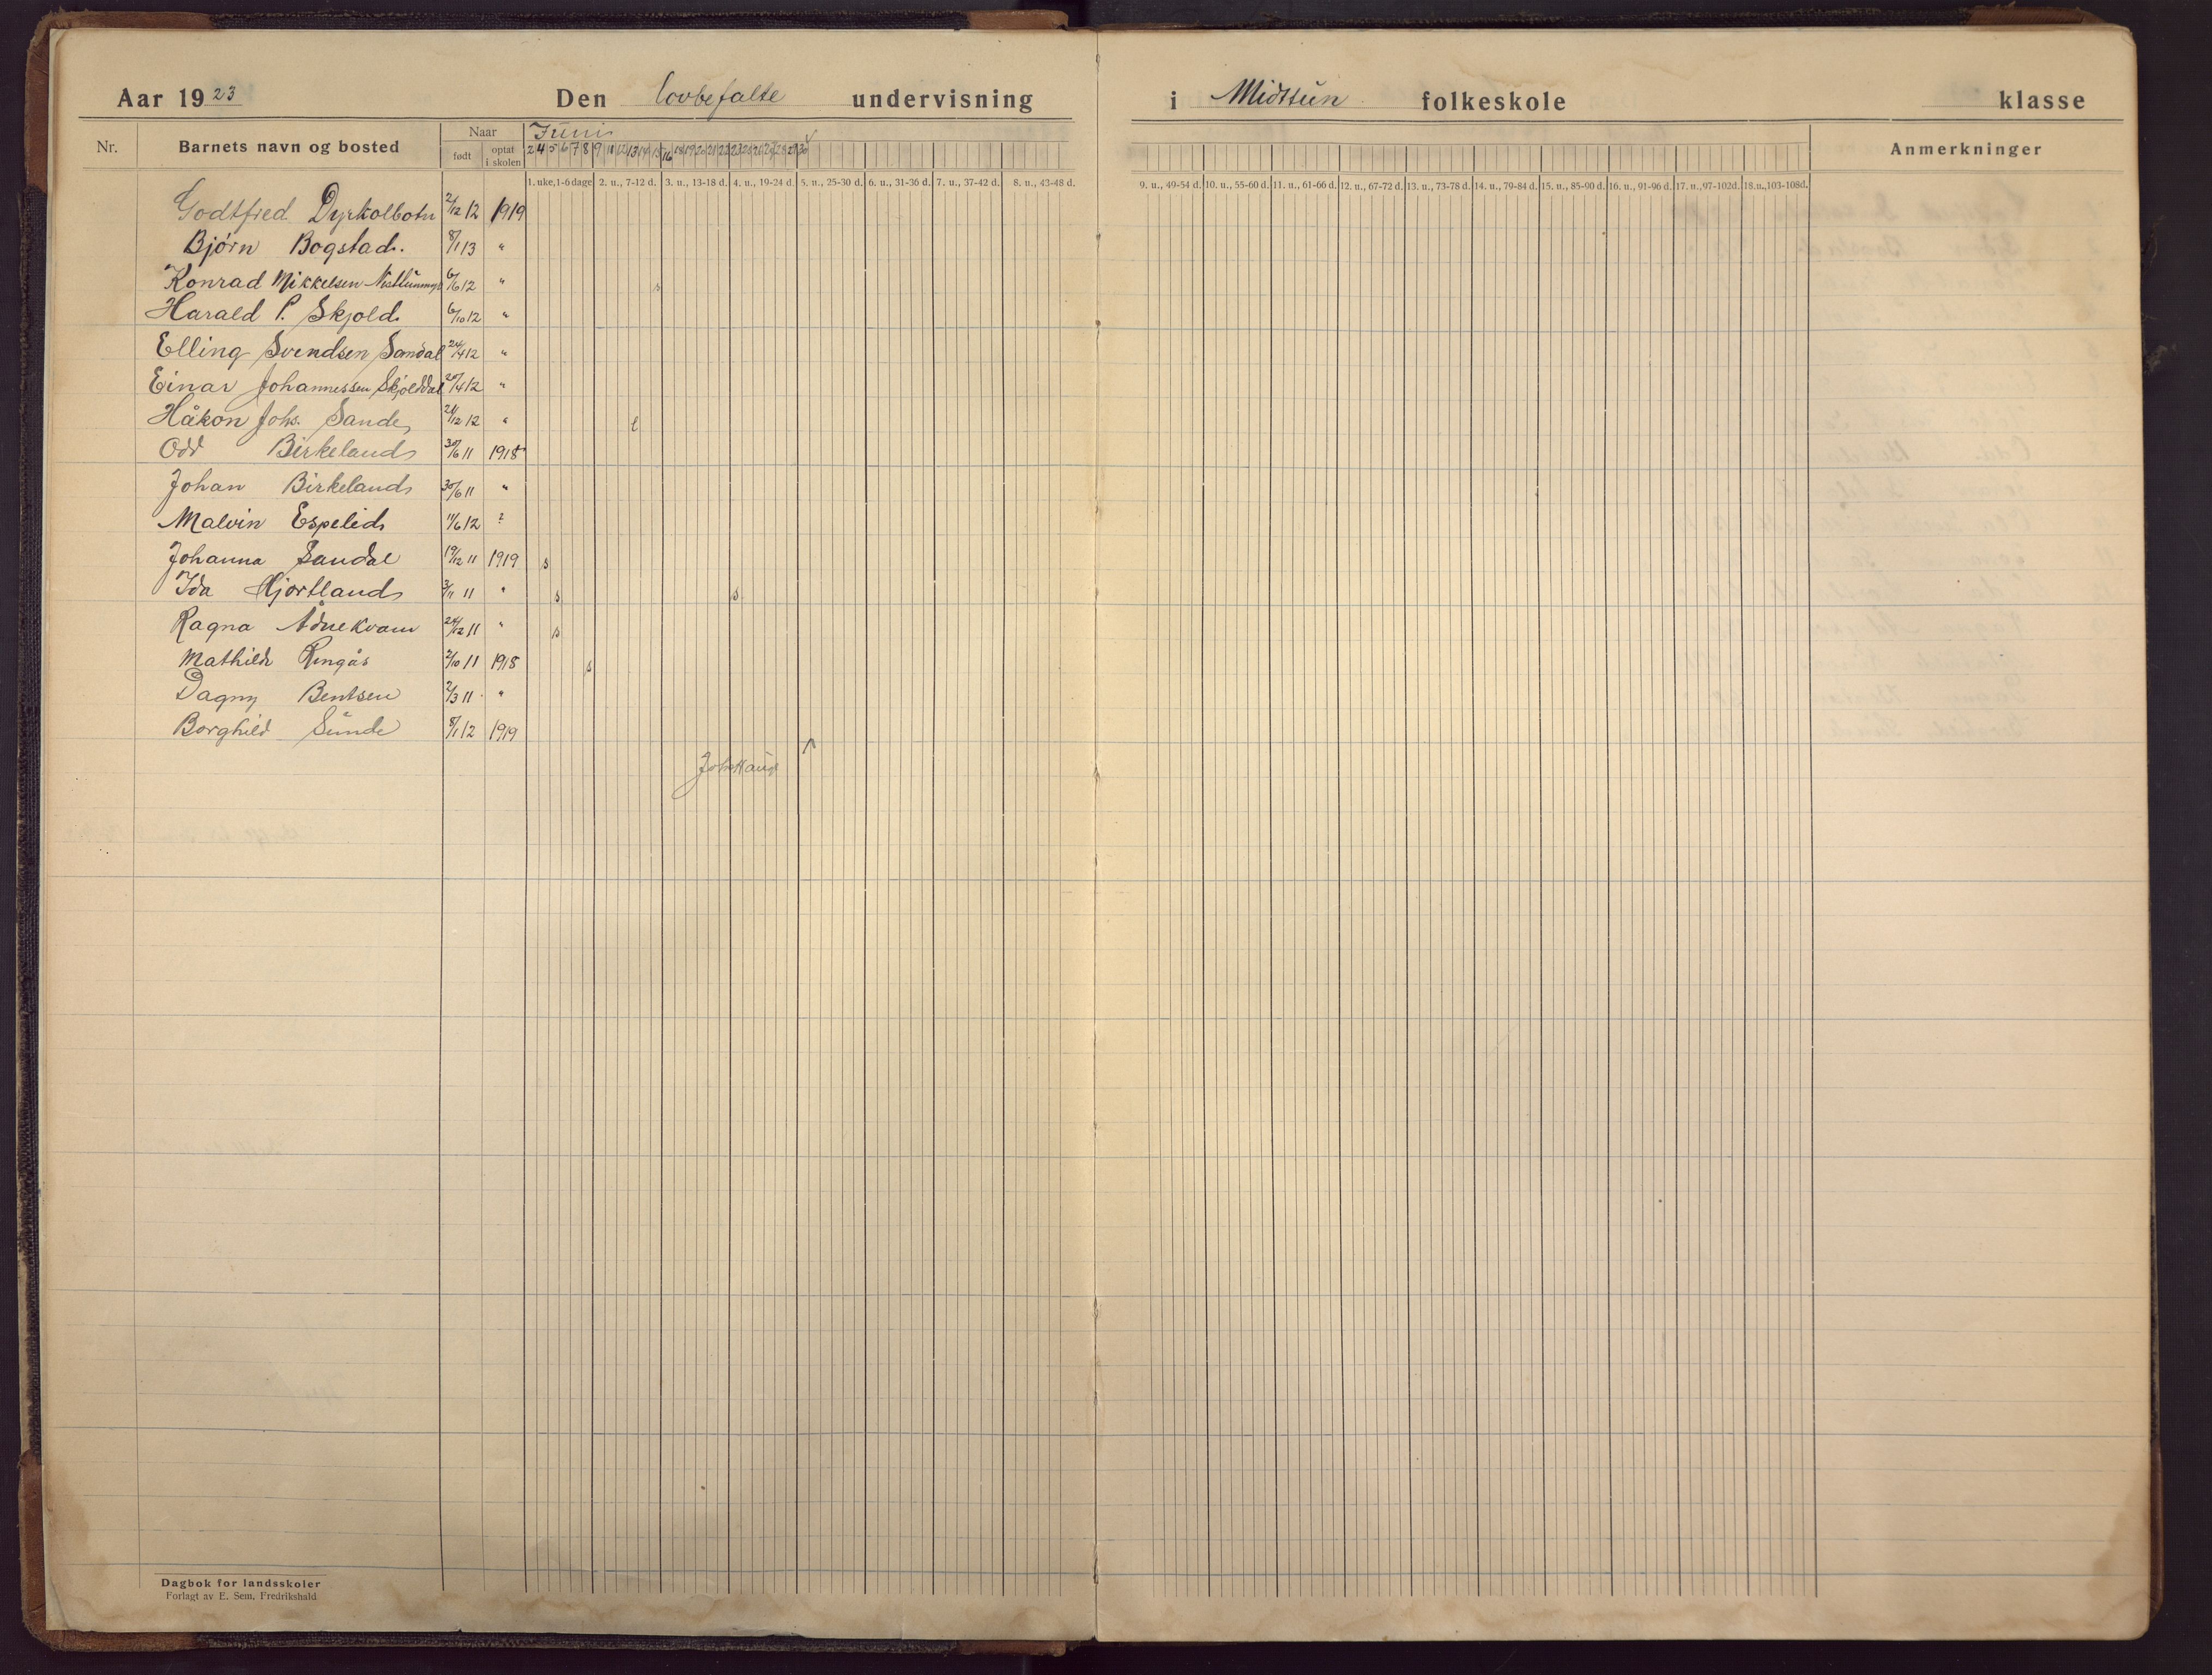 Aar 1923 Den lovbefalte undervisning i Midttun folkeskole klasse
Nr. Barnets navn og bosted Naar født optat i skolen Juni Anmerkninger
2 4 5 6 7 8 9 11 12 13 14 15 16 18 19 20 21 22 23 25 26 27 28 29 30
1. uke, 1-6 dage 2. u., 7-12 d. 3. u., 13-18 d. 4. u., 19-24 d. 5. u., 25-30 d. 6. u., 31-36 d. 7. u., 37-42 d. 8. u., 43-48 d. 9. u., 49-54 d. 10. u., 55-60 d. 11. u., 61-66 d. 12. u., 67-72 d. 13. u., 73-78 d. 14. u., 79-84 d. 15. u., 85-90 d. 16. u., 91-96 d. 17. u., 97-102d. 18.u.,103-108d.
Godtfred Dyrkolbotn 2/12 12 1919
Bjørn Bogstad. 8/1 13 "
Konrad Mikkelsen 6/6 12 " s
Harald P. Skjold 6/10 12 "
Elling Svendsen Sandal 24/4 12 "
Einar Johannessen Skjolddal 20/4 12 "
Håkon Johs. Sande 24/12 12 " l
Odd Birkeland 30/6 11 1918
Johan Birkeland 30/6 11 "
Malvin Espelid 11/6 12 ?
Johanna Sandal 19/12 11 1919 s
Ida Hjortland 3/11 11 " s s
Ragna Ådnekvam 24/12 11 " s
Mathilde Ringås 2/10 11 1918 s
Dagny Bentsen 2/3 11 "
Borghild Sunde 8/1 12 1919
Joh. Hauge
Dagbok for landsskoler
Forlagt av E. Sem, Fredrikshald